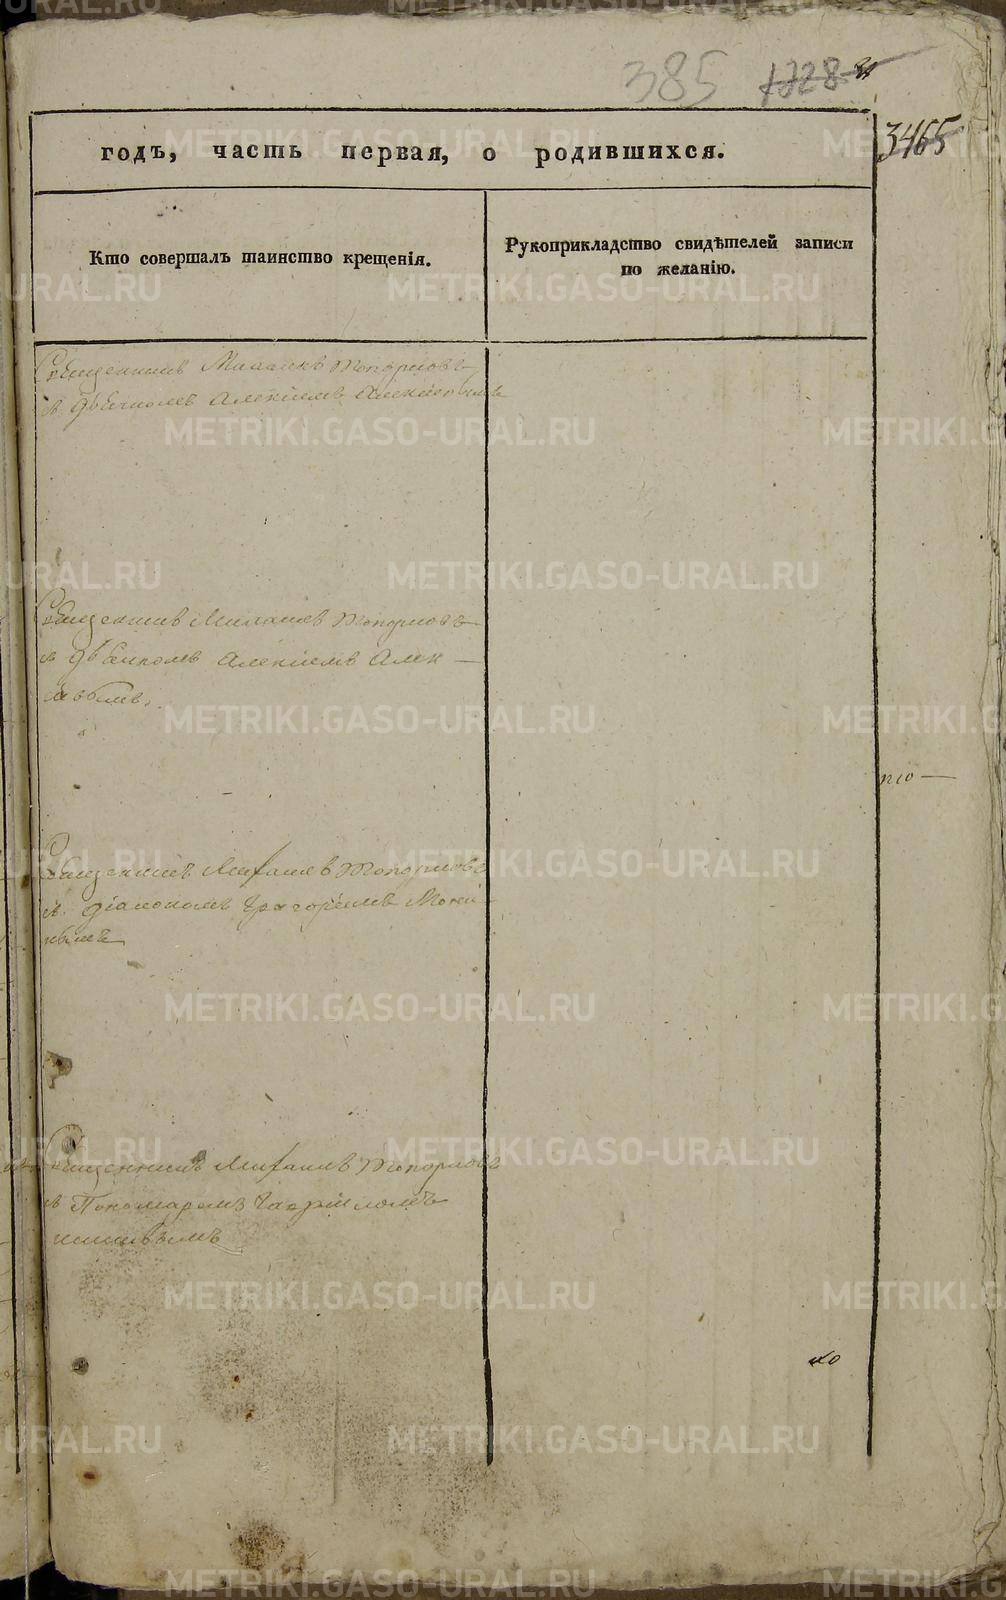 385 1728
3465
годъ, часть первая, о родившихся.
Кто совершалъ таинство крещенія.
Рукоприкладство свидѣтелей записи
по желанію.
Священникъ Михаилъ Топорковъ
съ дьячкомъ Алексіемъ
Священникъ Михаилъ Топорковъ
съ дьячкомъ Алексіемъ
по
Священникъ Михаилъ Топорковъ
съ діакономъ Григоріемъ
Священникъ Михаилъ Топорковъ
съ Пономаремъ Гавріиломъ
METRIKI.GASO-URAL.RU